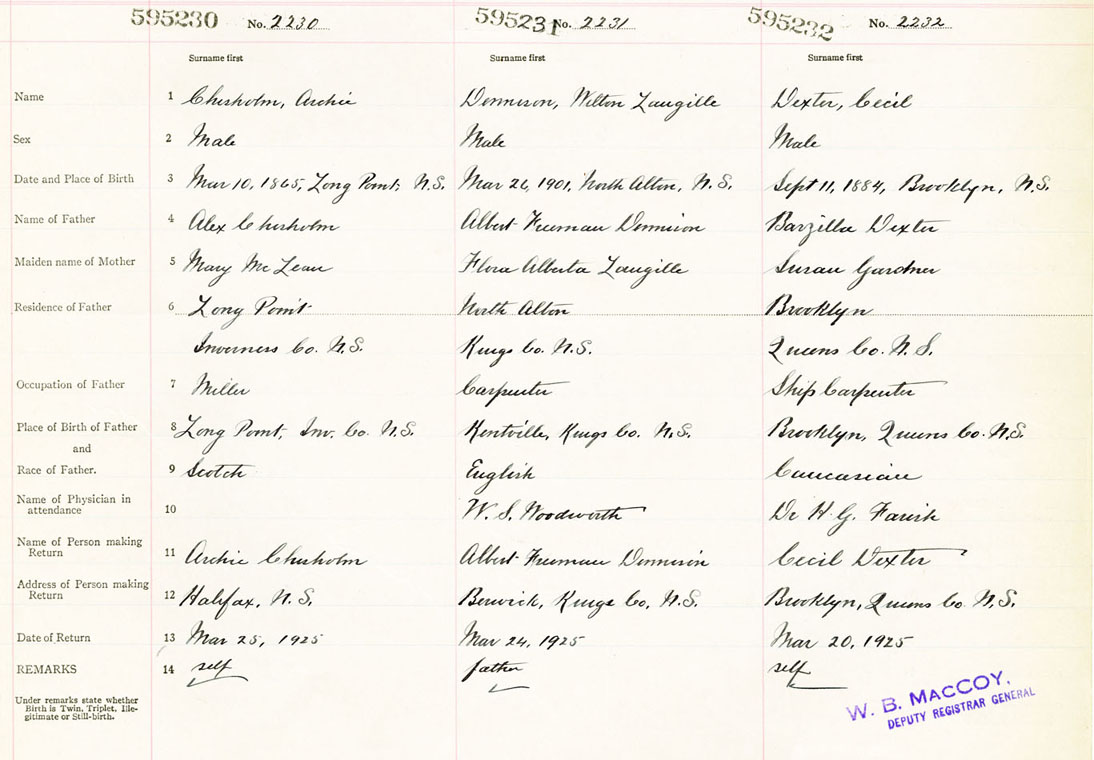 595230 No. 2230 595231 No. 2231 595232 No. 2232
Surname first Surname first Surname first
Name 1 Chisholm, Archie Dennison, Wilton Langille Dexter, Cecil
Sex 2 Male Male Male
Date and Place of Birth 3 Mar 10, 1865, Long Point, N.S. Mar 26, 1901, North Alton, N.S. Sept 11, 1884, Brooklyn, N.S.
Name of Father 4 Alex Chisholm Albert Freeman Dennison Barzilla Dexter
Maiden name of Mother 5 Mary McLean Flora Alberta Langille Susan Gardner
Residence of Father 6 Long Point North Alton Brooklyn
Inverness Co. N.S. Kings Co. N.S. Queens Co. N.S.
Occupation of Father 7 Miller Carpenter Ship Carpenter
Place of Birth of Father 8 Long Point, Inv. Co. N.S. Kentville, Kings Co. N.S. Brooklyn, Queens Co. N.S.
and
Race of Father. 9 Scotch English Caucasian
Name of Physician in
attendance 10 W. S. Woodworth Dr H. G. Farish
Name of Person making
Return 11 Archie Chisholm Albert Freeman Dennison Cecil Dexter
Address of Person making
Return 12 Halifax, N.S. Berwick, Kings Co, N.S. Brooklyn, Queens Co. N.S.
Date of Return 13 Mar 25, 1925 Mar 24, 1925 Mar 20, 1925
REMARKS 14 self father self
Under remarks state whether
Birth is Twin, Triplet, Ille-
gitimate or Still-birth.
W. B. MACCOY,
DEPUTY REGISTRAR GENERAL